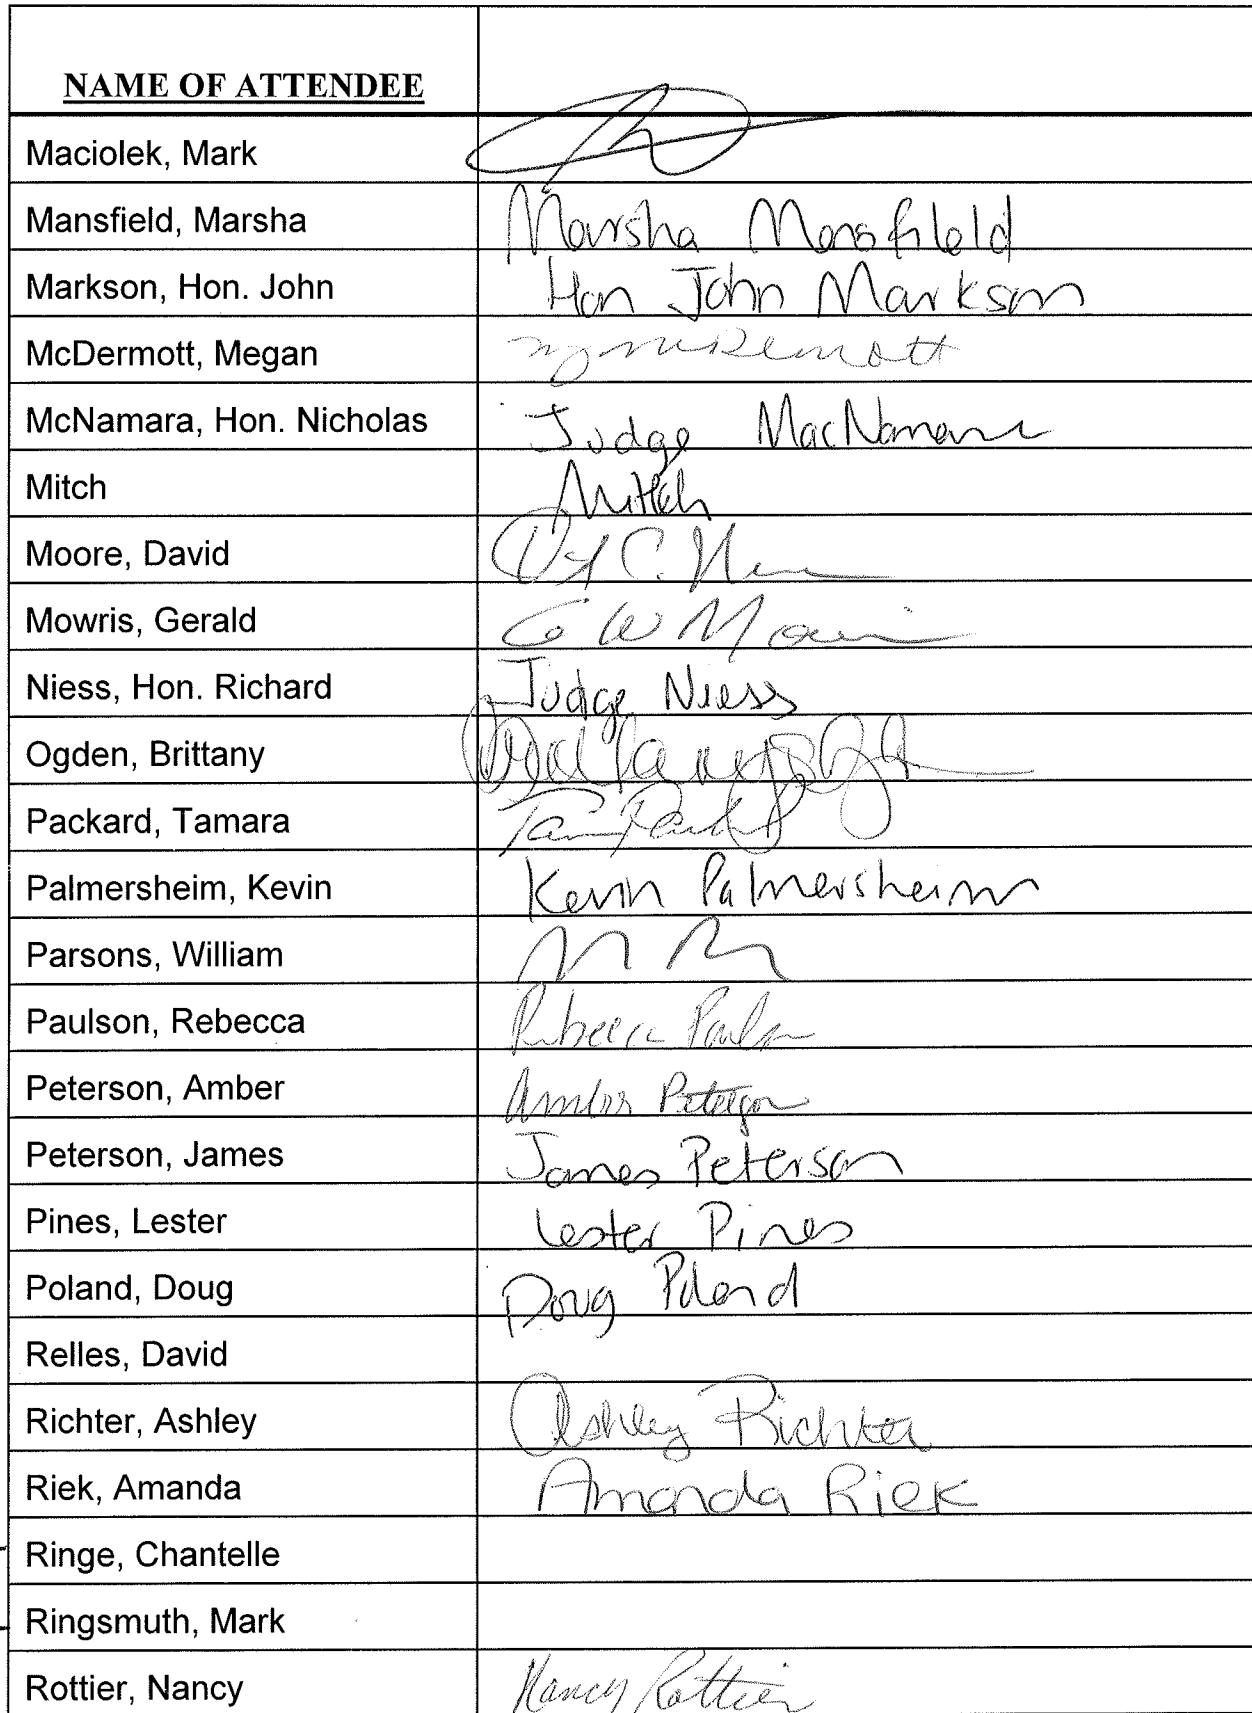 NAME OF ATTENDEE
Maciolek, Mark
Mansfield, Marsha Marsha Mansfileld
Markson, Hon. John Hon John Markson
McDermott, Megan McDermott
McNamara, Hon. Nicholas Judge MacNamara
Mitch Mitch
Moore, David
Mowris, Gerald G W Mowris
Niess, Hon. Richard Judge Niess
Ogden, Brittany
Packard, Tamara
Palmersheim, Kevin Kevin Palmersheim
Parsons, William
Paulson, Rebecca Rebecca Paulson
Peterson, Amber Amber Peterson
Peterson, James James Peterson
Pines, Lester Lester Pines
Poland, Doug Doug Poland
Relles, David
Richter, Ashley Ashley Richter
Riek, Amanda Amanda Riek
Ringe, Chantelle
Ringsmuth, Mark
Rottier, Nancy Nancy Rottier